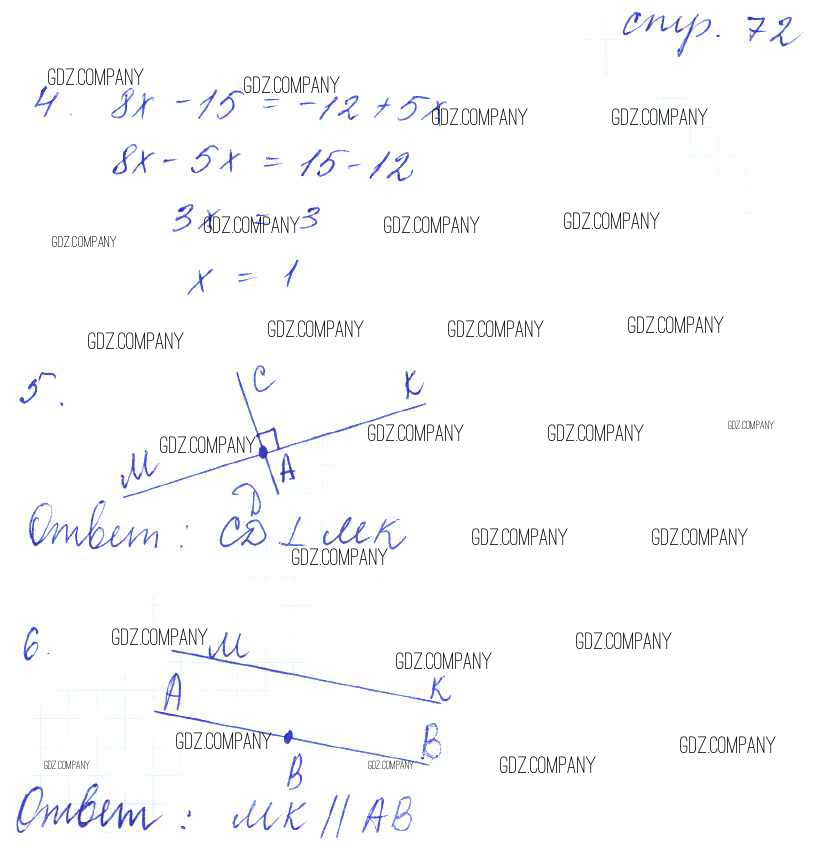 стр. 72
GDZ.COMPANY GDZ.COMPANY
4. 8x - 15 = -12 + 5x
GDZ.COMPANY GDZ.COMPANY
8x - 5x = 15 - 12
3x = 3
GDZ.COMPANY GDZ.COMPANY GDZ.COMPANY GDZ.COMPANY
x = 1
GDZ.COMPANY GDZ.COMPANY GDZ.COMPANY GDZ.COMPANY
5. C K
GDZ.COMPANY GDZ.COMPANY GDZ.COMPANY GDZ.COMPANY
M A
D
Ответ: CD ⊥ MK
GDZ.COMPANY GDZ.COMPANY GDZ.COMPANY
6. GDZ.COMPANY M GDZ.COMPANY
GDZ.COMPANY
A K
GDZ.COMPANY B GDZ.COMPANY
GDZ.COMPANY B GDZ.COMPANY GDZ.COMPANY
Ответ: MK || AB